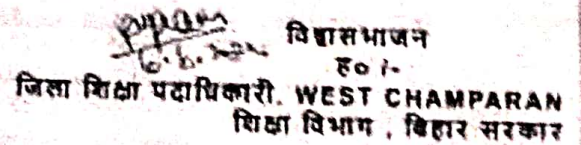 विश्वासभाजन
ह० /-
जिला शिक्षा पदाधिकारी. WEST CHAMPARAN
शिक्षा विभाग , बिहार सरकार